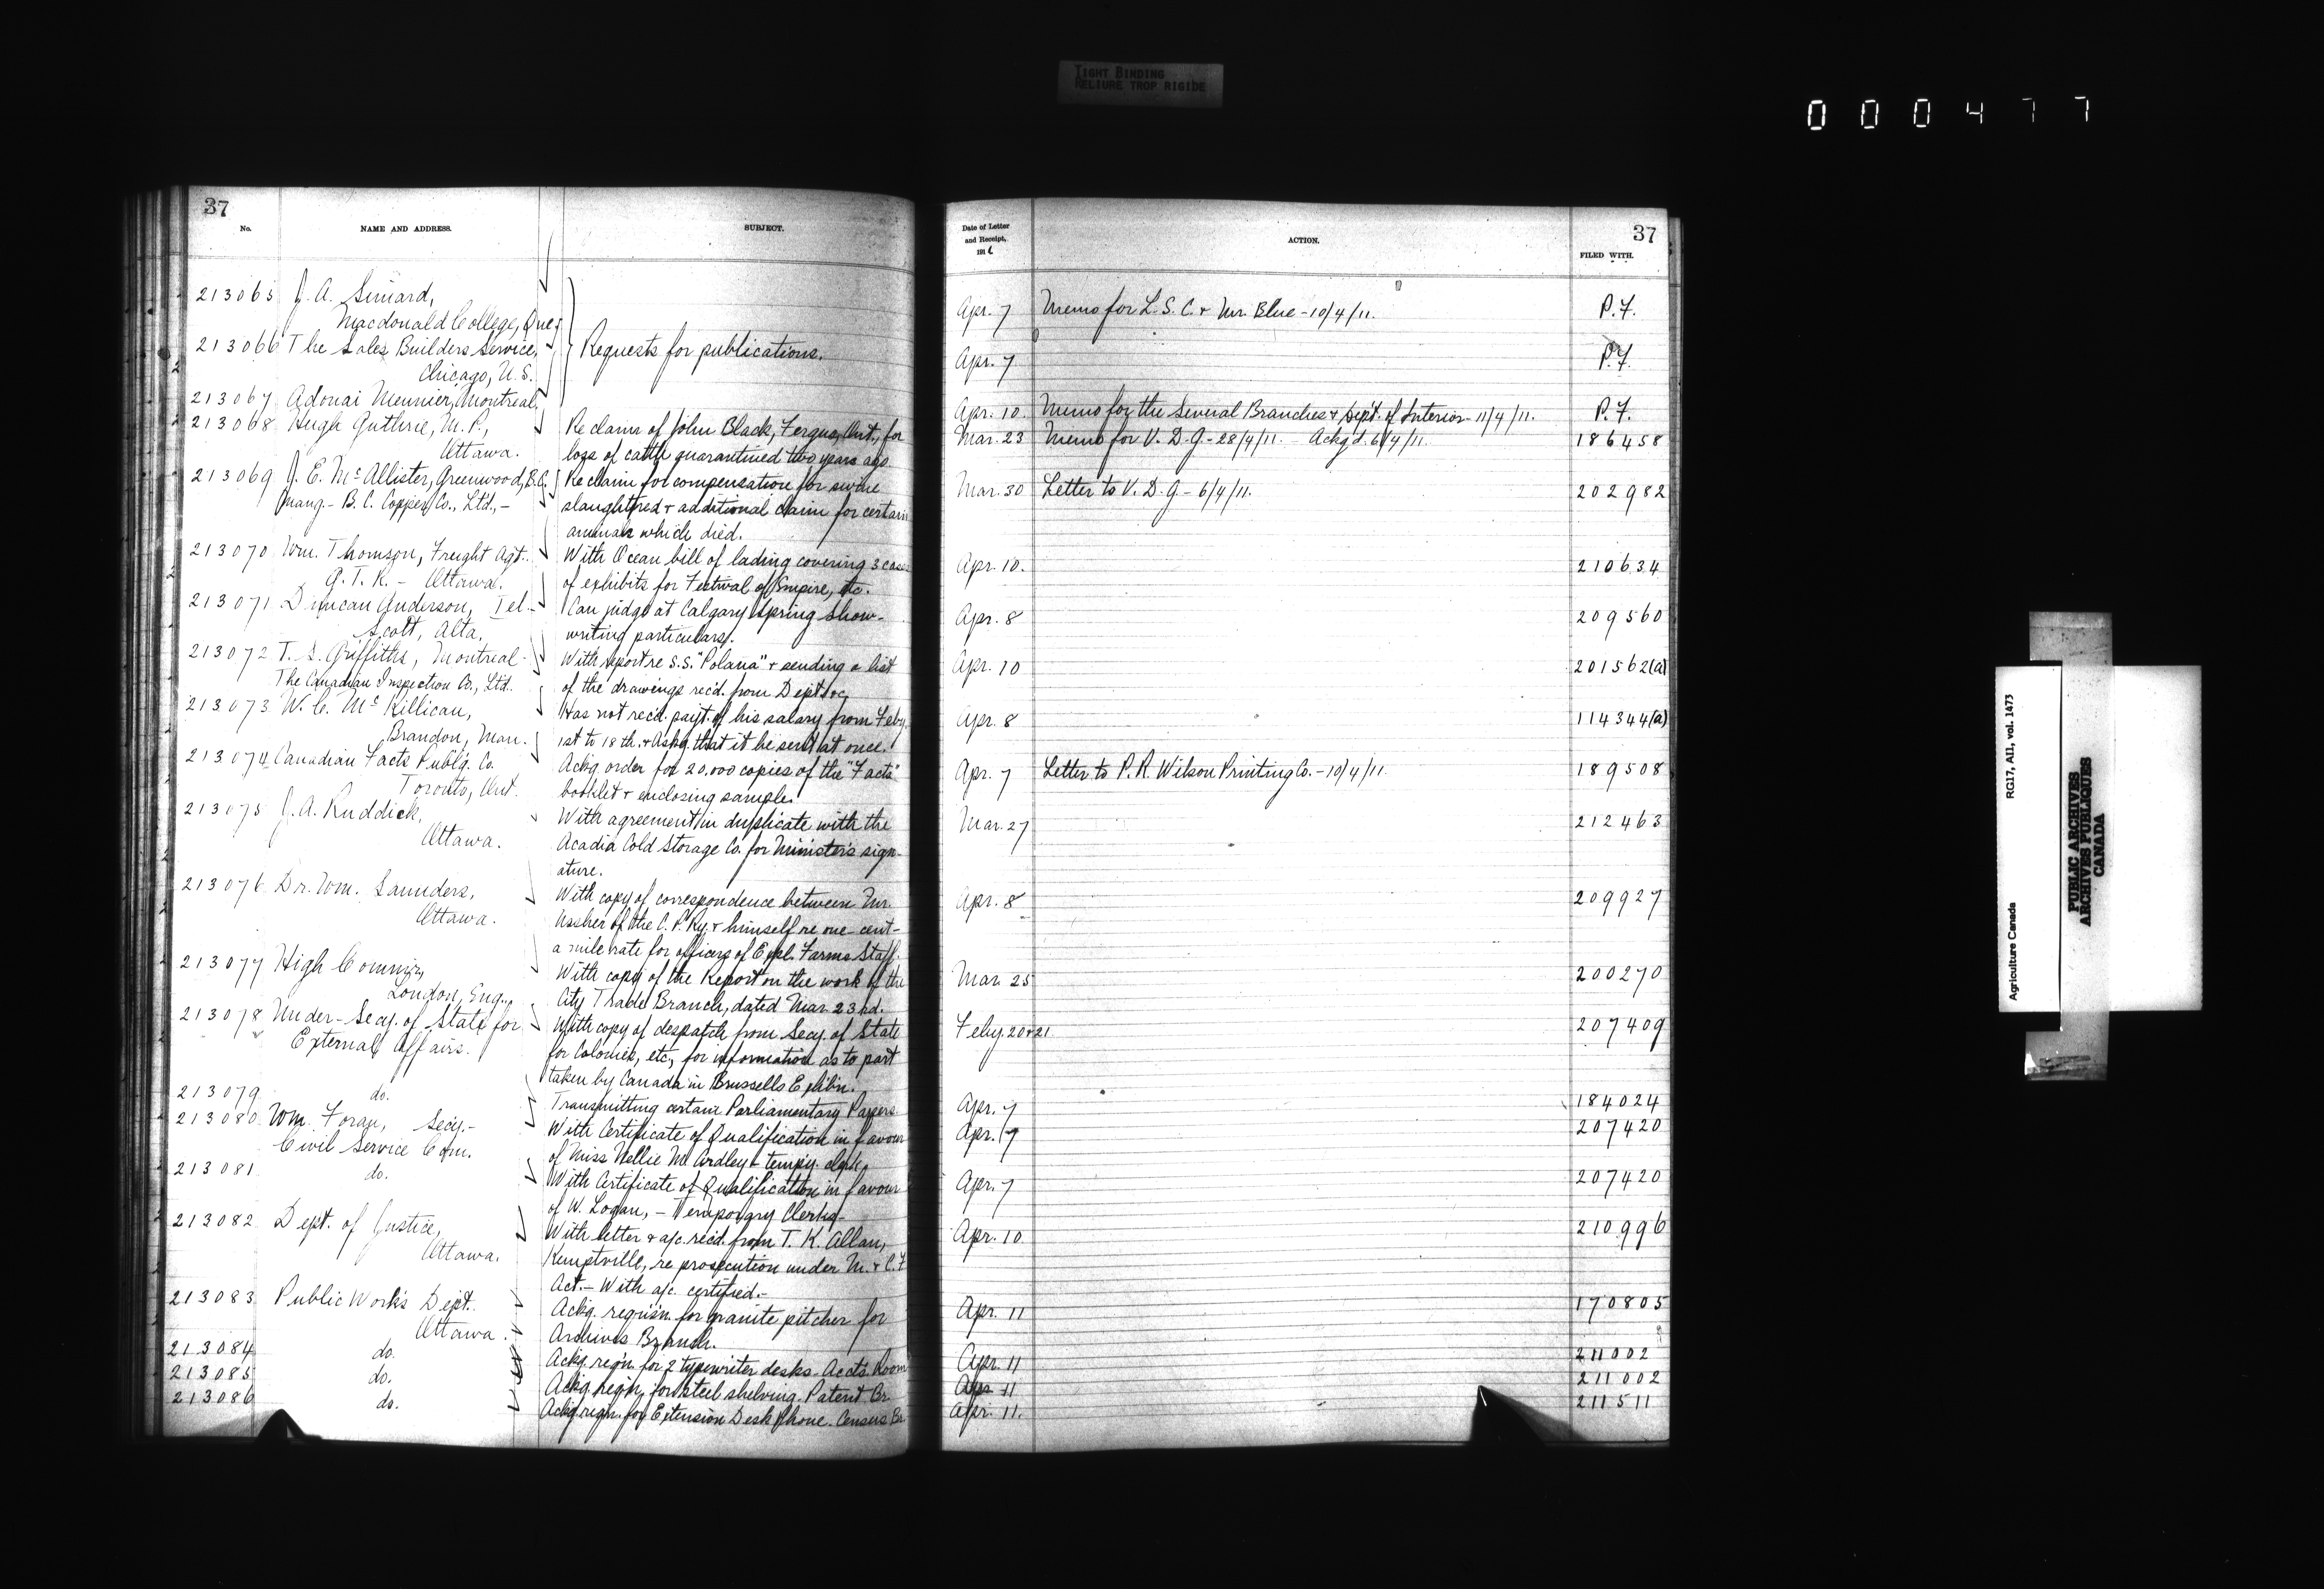 TIGHT BINDING
RELIURE TROP RIGIDE
000477
37
No.
NAME AND ADDRESS.
SUBJECT.
213065 J. A. Simard,
Macdonald College, Que.
213066 The Sales Builders Service,
Chicago, U.S.
Requests for publications.
213067 Adonai Meunier, Montreal.
213068 Hugh Guthrie, M.P., Re claim of John Black, Fergus, Ont., for
Ottawa. loss of cattle quarantined two years ago
213069 J. E. McAllister, Greenwood, B.C. Re claim for compensation for swine
Mang.- B. C. Copper Co., Ltd., - slaughtered & additional claim for certain
animals which died.
213070 Wm. Thomson, Freight Agt. With Ocean bill of lading covering 3 cases
G. T. R. - Ottawa. of exhibits for Festival of Empire, etc.
213071 Duncan Anderson, Tel- Can judge at Calgary Spring Show-
Scott, Alta. writing particulars.
213072 T. S. Griffiths, Montreal- With report re S.S. "Polana" & sending a list
The Canadian Inspection Co., Ltd. of the drawings rec'd. from Dept.
213073 W. C. McKillican, Has not rec'd. payt. of his salary from Feby.
Brandon, Man. 1st to 18th. & Askg. that it be sent at once.
213074 Canadian Facts Publg. Co. Ackg. order for 20,000 copies of the "Facts"
Toronto, Ont. booklet & enclosing sample.
213075 J. A. Ruddick, With agreement in duplicate with the
Ottawa. Acadia Cold Storage Co. for Minister's sign-
ature.
213076 Dr. Wm. Saunders, With copy of correspondence between Mr.
Ottawa. of the C. P. Ry. & himself re one cent-
a mile rate for officers of Expl. Farms Staff.
213077 High Commr., With copy of the Report on the work of the
London, Eng., City Trade Branch, dated Mar. 23rd.
213078 Under-Secy. of State for With copy of despatch from Secy. of State
External Affairs. for Colonies, etc, for information as to part
taken by Canada in Brussells Exhib'n.
213079 do. Transmitting certain Parliamentary Papers.
213080 Wm. Foran, Secy.- With Certificate of Qualification in favour
Civil Service Com. of Miss Nellie McArdley - tempy. clerk.
213081 do. With Certificate of Qualification in favour
of W. Logan, - Temporary Clerk.-
213082 Dept. of Justice, With letter & a/c. rec'd. from T. K. Allan,
Ottawa. Kemptville, re prosecution under M. & C. F
Act.- With a/c. certified.-
213083 Public Works Dept. Ackg. requis'n. for granite pitcher for
Ottawa. Archives Branch.
213084 do. Ackg. reqn. for 2 typewriter desks- Accts. Room
213085 do. Ackg. reqn. for steel shelving. Patent Br.
213086 do. Ackg. reqn. for Extension Desk Phone. Census Br.
37
Date of Letter
and Receipt,
191
ACTION.
FILED WITH.
Apr. 7 Memo for L. S. C. & Mr. Blue - 10/4/11. P. F.
Apr. 7 P. F.
Apr. 10. Memo for the Several Branches & Dept. of Interior- 11/4/11. P. F.
Mar. 23 Memo for V. D. G. - 28/4/11. - Ackg'd. 6/4/11. 186458
Mar. 30 Letter to V. D. G. - 6/4/11. 202982
Apr. 10. 210634
Apr. 8 209560
Apr. 10 201562(a)
Apr. 8 114344(a)
Apr. 7 Letter to P. R. Wilson Printing Co. - 10/4/11. 189508
Mar. 27 212463
Apr. 8 209927
Mar. 25 200270
Feby. 20 & 21. 207409
Apr. 7 184024
Apr. 7 207420
Apr. 7 207420
Apr. 10 210996
Apr. 11 170805
Apr. 11 211002
Apr. 11 211002
Apr. 11. 211511
Agriculture Canada RG17, AII, vol. 1473
PUBLIC ARCHIVES
ARCHIVES PUBLIQUES
CANADA